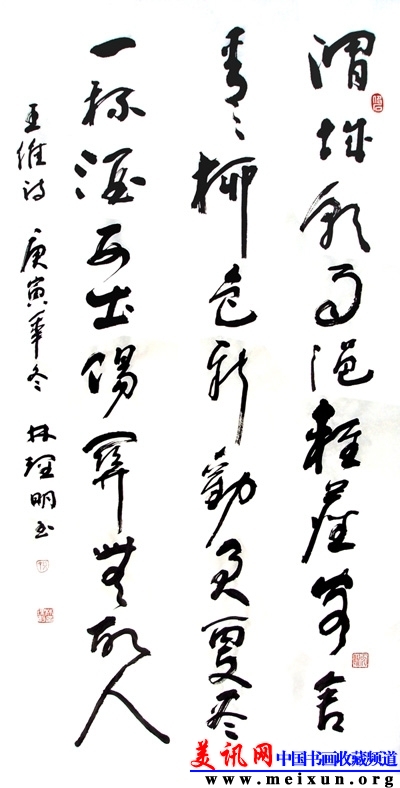 渭城朝雨浥輕塵客舍
青々柳色新勸君更尽
一杯酒西出陽関無故人
王维诗 庚寅年冬 林理明书
美讯网中国书画收藏频道
www.meixun.org